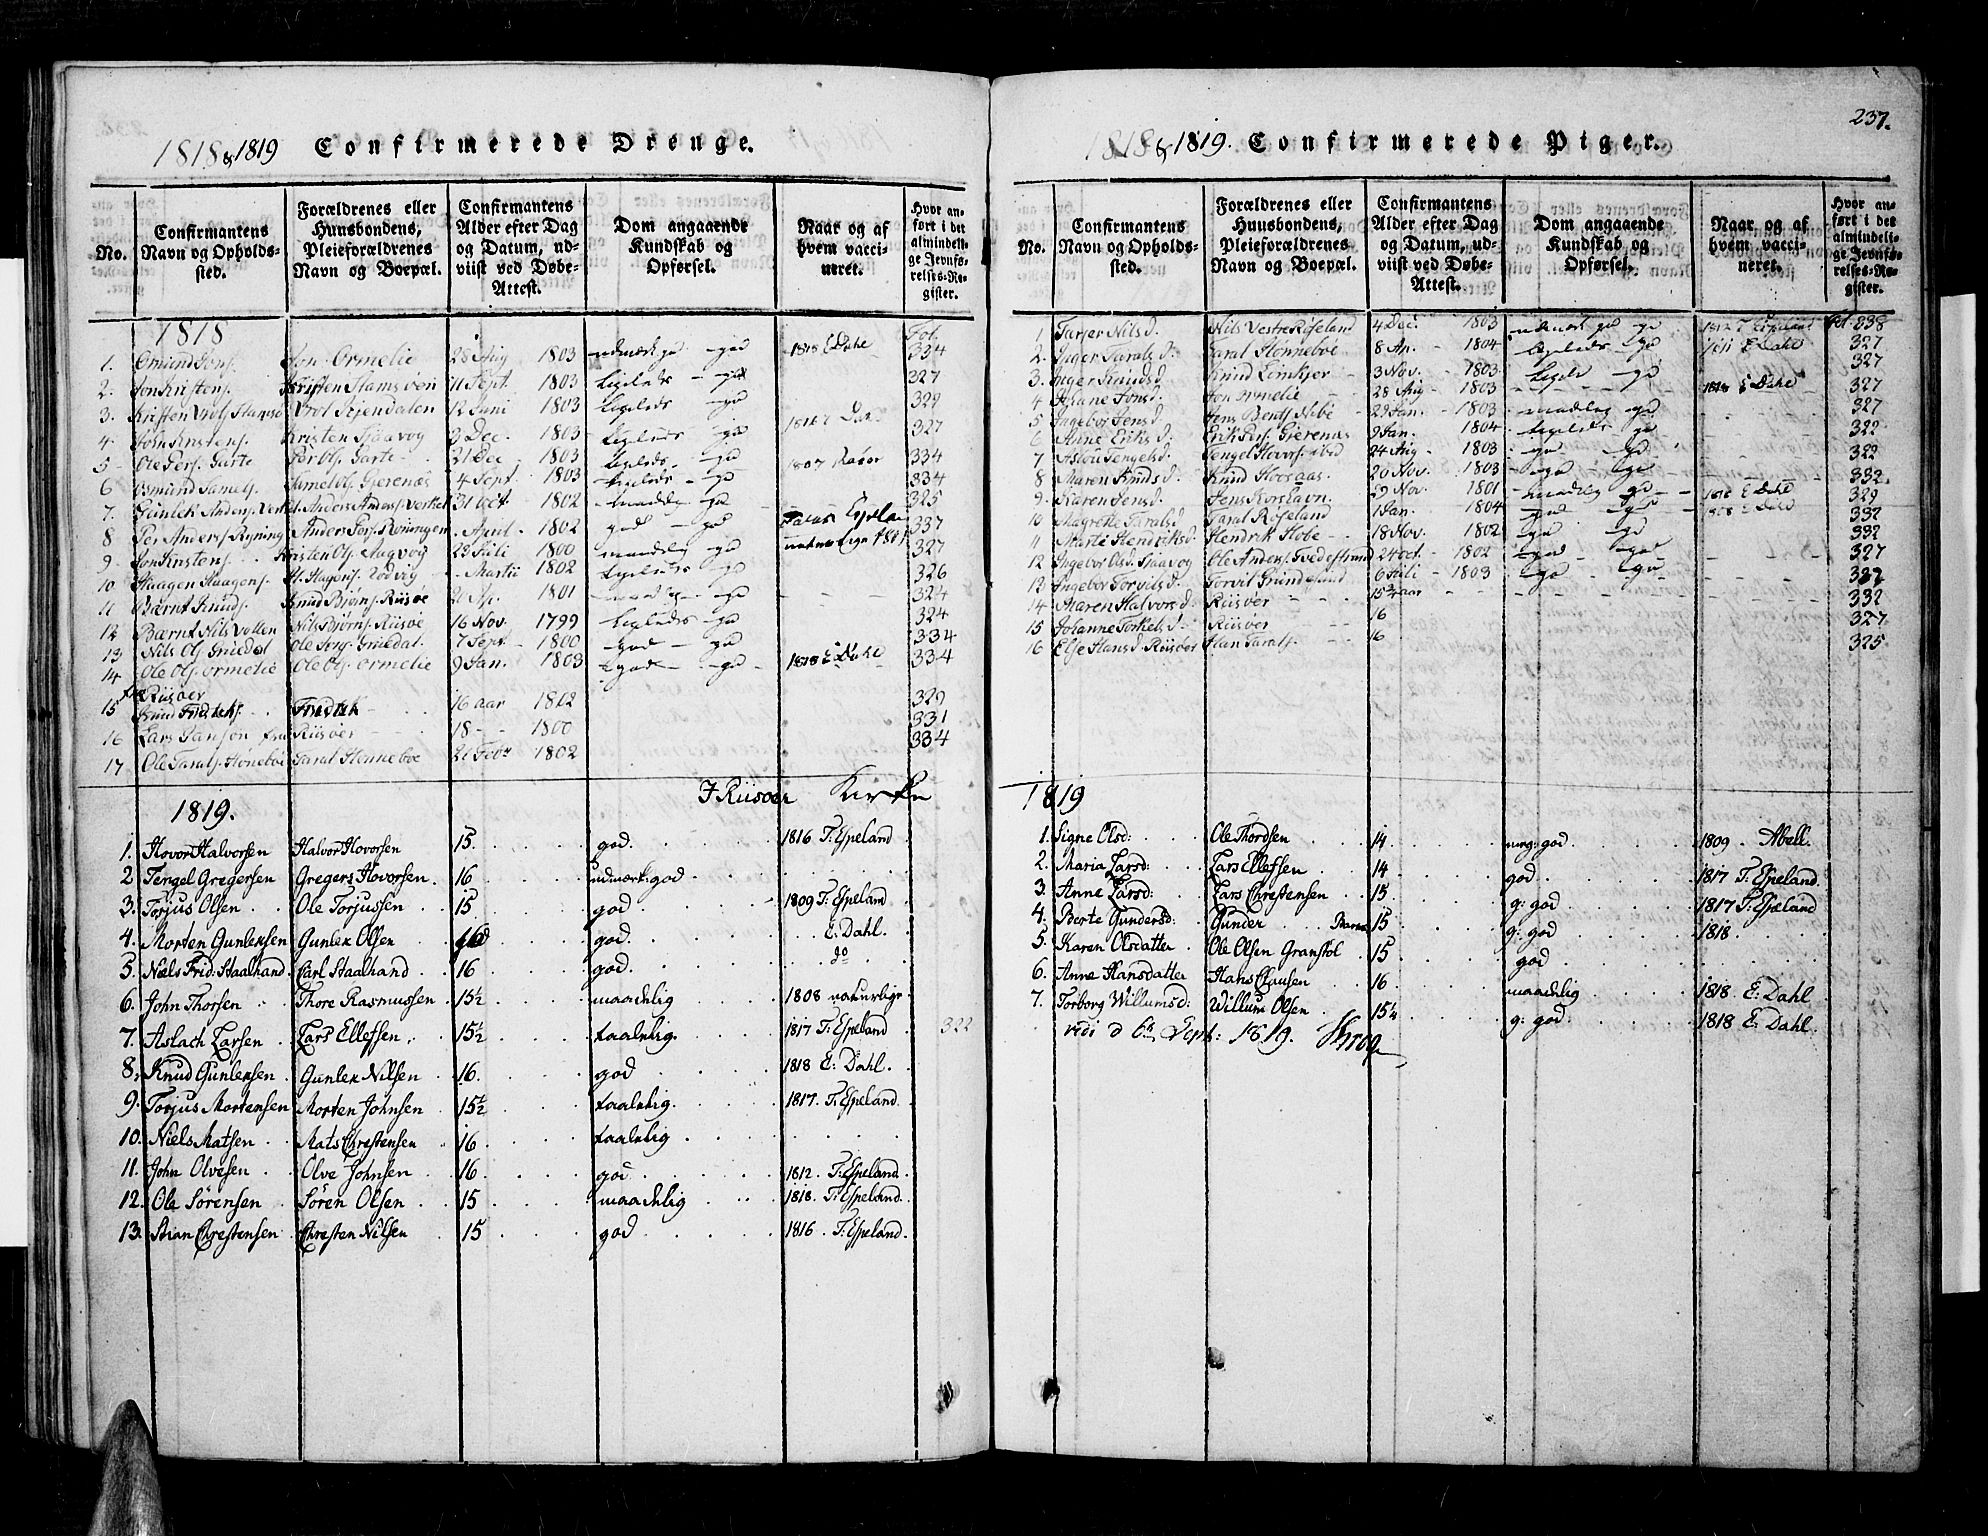 1818 & 1819 Confirmerede Drenge.
No.
Confirmantens Navn og Opholdssted.
Forældrenes eller Huusbondens, Pleieforældrenes Navn og Boepæl.
Confirmantens Alder efter Dag og Datum, udviist ved Døbe-Attest.
Dom angaaende Kundskab og Opførsel.
Naar og af hvem vaccineret.
Hvor anført i det almindelige Jevnførelses-Register.
1818 Fol.
1. Osmund Jons. Jon Ormelie 28 Aug 1803 udmærk god - god 1818 E Dahl 334
2. Jon Kristens. Kristen Stamsøen 11 Sept. 1803 Ligeleds - god 327
3. Vrol Kijendalen 12 Juni 1803 Ligeleds - gd 329
4. Jon Kristens. Kristen Sjaavog 3 Dec. 1803 Ligeleds gd 327
5 Ole Pers. Garte Per Ols. Garte 21 Dec 1803 Ligeleds - gd 1807 334
6 Osmund Samels. Samel Ols. Gjerenæs 4 Sept. 1803 Ligeleds - gd 334
7. Gunlek Anders. Verket Anders Anders. Verket 31 Oct 1802 maadelig gd 325
8 Per Anders. Røining Anders Pers. Røiningen - April - 1802 god - god 337
9 Jon Kristens. Kristen Ols. Aagvog 22 Juli 1800 maadelig gd 327
10 Haagen Haagens. H. Hagens. Rødvig - Martii 1802 Ligeleds - gd 326
11 Bærnt Knuds. Knud Bjørns. Riisøe 1801 324
12 Bærnt Nils Vollen Nils Bjørns. Riisøe 16 Nov. 1799 Ligeleds - gd 324
13 Nils Ols. Gruedal Ole Gruedal 7 Sept. 1800 god - gd 334
14 Ole Ols. Ormelie Ole Ols. Ormelie 9 Jan. 1803 god - gd 1818 E Dahl 334
fra Riisøer
15 Knud Fridriks. Fridrik 16 aar 1802 329
16 Lars fra Riisøer 18 - 1800 331
17 Ole Tarals. Hønebøe Taral Hønnebøe 21 Febr 1802 334
I Riisøer Kirke
1819.
1. Hovor Halvorsen Halvor Hovorsen 15. god. 1816 T: Espeland
2. Tengel Gregersen Gregers Hovorsen. 16 udmærk: god
3. Torjus Olsen Ole Torjussen 15 god 1809 T: Espeland
4. Morten Gunleksen Gunlek Olsen 16 god. E: Dahl.
5. Niels Frid: Staalhand. Carl Staalhand 16 god. do
6. John Thorsen Thore Rasmussen 15½ maadelig 1808 naturlige
7. Aslach Larsen Lars Ellefsen 15½ taalelig. 1817 T: Espeland 322
8. Knud Gunleksen Gunlek Nilsen 16. god 1818 E: Dahl.
9. Torjus Mortensen Morten Johnsen 15½ taalelig. 1817. T: Espeland.
10. Niels Matsen Mats Chrestensen 16 taalelig
11. John Olvesen Olve Johnsen 16 god 1812. T: Espeland
12. Ole Sørensen Søren Olsen 15 maadelig 1818. T: Espeland.
13. Stian Chrestensen Chresten Nilsen 15 god 1816 T: Espeland.
237.
1818 & 1819. Confirmerede Piger.
No.
Confirmantens Navn og Opholdssted.
Forældrenes eller Huusbondens, Pleieforældrenes Navn og Boepæl.
Confirmantens Alder efter Dag og Datum, udviist ved Døbe-Attest.
Dom angaaende Kundskab og Opførsel.
Naar og af hvem vaccineret.
Hvor anført i det almindelige Jevnførelses-Register.
1 Tarjer Nilsd. Nils Vestre Røseland 4 Dec. 1803 udmærk god gd 1812 T Espeland fol. 338
2. Inger Taralsd. Taral Hønnebøe 8 Ap. 1804 Ligeleds - gd 1811 E Dahl 327
3. Inger Knudsd. Knud Limkjer 3 Nov. 1803 Ligele gd 327
4 Jons d. Jon Ormelie 28 Aug 1803 1818 E Dahl 327
5 Ingebor Jensd. Jens Bents. Nibe 22 Jan. 1803 maadelig gd 327
6 Anne Eriksd. Erik Pers. Gjerenæs 9 Jan. 1804 Ligeleds - gd 322
7 Aslou Tengelsd. Tengel Hovors. 24 Aug 1803 gd gd 322
8 Maren Knudsd. Knud Hovsaas 20 Nov. 1803 gd gd 332
9. Karen Jensd. Jens Korshavn. 29 Nov. 1801 maadelig gd 1818 E Dahl 329
10 Magrette Taralsd Taral Røseland 1 Jan. 1804 god gd 1818 E Dahl 332
11 Marte Hendriksd. Hendrik Hobe 18 Nov. 1802 gd gd 332
12 Ingebor Olsd. Sjaavog Ole Anders. Tvedestrand 24 Oct. 1802 god god 327
13 Ingebor Torvilsd Torvil Grundesund 6 Juli 1803 gd gd 327
14 Maren Halvorsd. Riisøer 15¾ aar 332
15 Johanne Torkelsd. Riisøer 16 327
16 Else Hansd. Riisøer Han Taralss. 16 325
1819
1. Signe Olsd: Ole Thordsen 14 meg: god 1809 Abell.
2. Maria Larsd: Lars Ellefsen 14 god 1817 T: Espeland.
3. Anne Larsd: Lars Chrestensen 15 g: god 1817 T: Espeland
4. Berte Gundersd: Gunder 15 g: god 1818.
5. Karen Olsdatter Ole Olsen Granstøl 15 god
6. Anne Hansdatter Hans Clausen 16 maadelig 1818. E: Dahl
7. Torborg Willumsd: Willum Olsen 15¼ g: god. 1818 E: Dahl.
vidi d 6te Sept: 1819. Krog